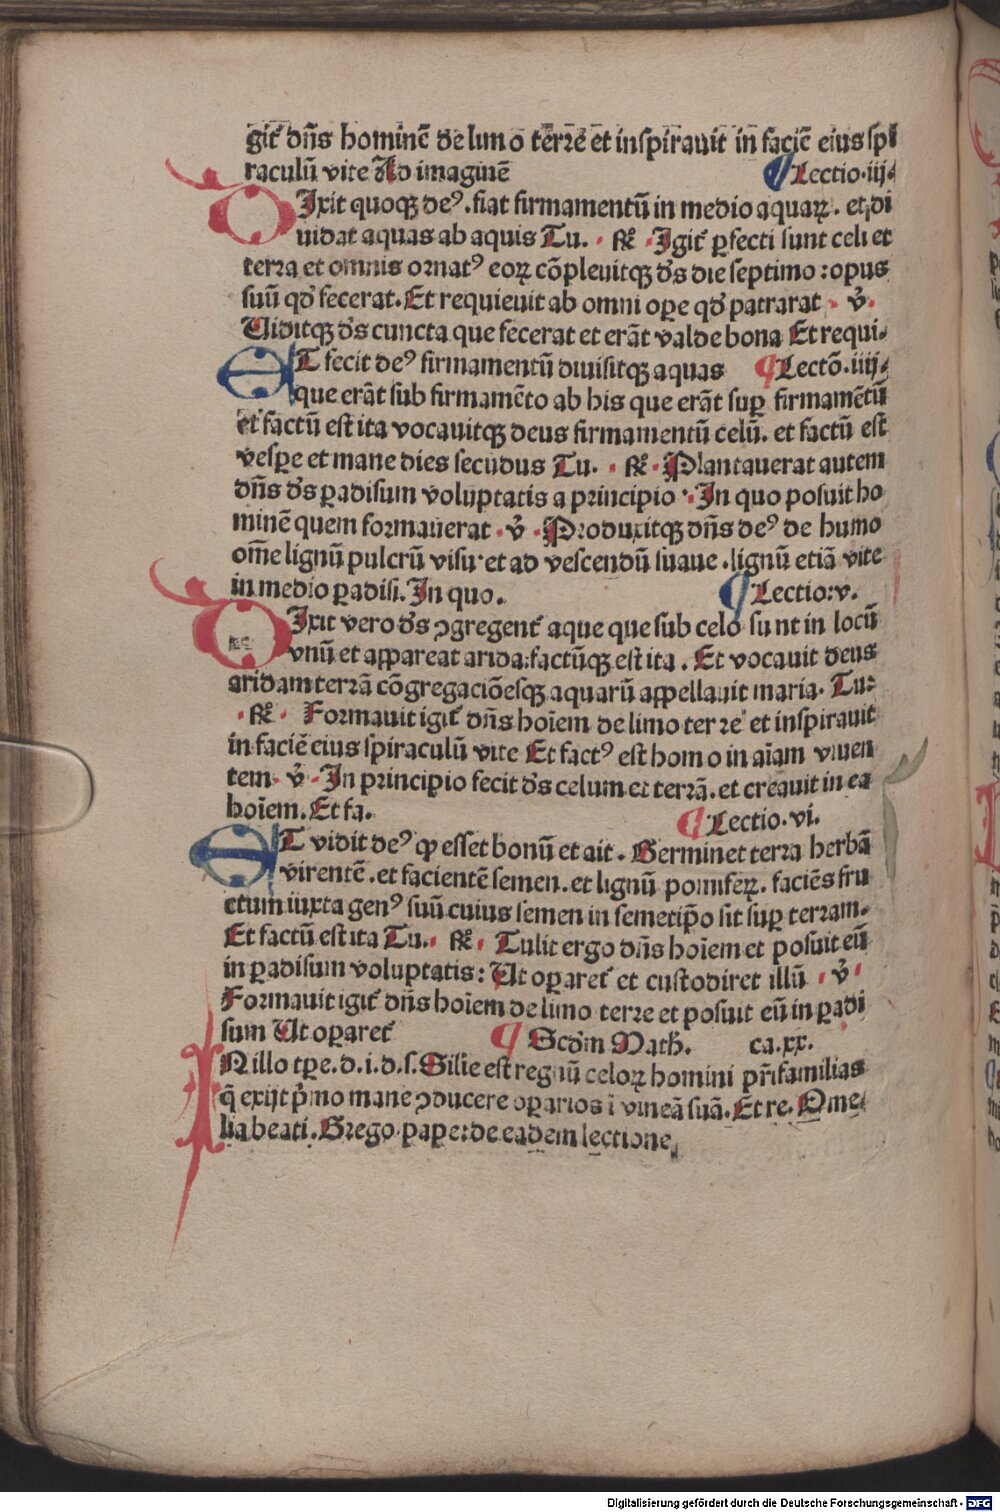 git᷑ dn̄s hominē de limo terre et inspirauit in faciē eius spi
raculū vite Ad imaginē ¶ Lectio.iij.
DIxit quoqꝫ deꝰ. fiat firmamentū in medio aquaꝝ. et di
uidat aquas ab aquis Tu. ℞. Igit᷑ ꝑfecti sunt celi et
terra et omnis ornatꝰ eoꝝ cōpleuitqꝫ ds̄ die septimo : opus
suū qd̄ fecerat. Et requieuit ab omni oꝑe qd̄ patrarat ℣.
Uiditqꝫ ds̄ cuncta que fecerat et erāt valde bona Et requi.
ET fecit deꝰ firmamentū diuisitqꝫ aquas ¶ Lectō.iiij.
que erāt sub firmamēto ab his que erāt suꝑ firmamētū
et factū est ita vocauitqꝫ deus firmamentū celū. et factū est
vesꝑe et mane dies secūdus Tu. ℞. Plantauerat autem
dn̄s ds̄ ꝑadisum voluptatis a principio. In quo posuit ho
minē quem formauerat. ℣. Produxitqꝫ dn̄s deꝰ de humo
om̄e lignū pulcrū visu. et ad vescendū suaue. lignū etiā vite
in medio ꝑadisi. In quo. ¶ Lectio:v.
DIxit vero ds̄ ꝯgregent᷑ aque que sub celo sunt in locū
vnū et appareat arida: factūqꝫ est ita. Et vocauit deus
aridam terrā cōgregaciōesqꝫ aquarū appellauit maria. Tu:
℞. Formauit igit᷑ dn̄s hoīem de limo terre et inspirauit
in faciē eius spiraculū vite Et factꝰ est homo in aīam viuen
tem. ℣. In principio fecit ds̄ celum et terrā. et creauit in ea
hoīem. Et fa. ¶ Lectio.vi.
ET vidit deꝰ ꝙ esset bonū et ait. Germinet terra herbā
virentē. et facientē semen. et lignū pomifeꝝ. faciēs fru
ctum iuxta genꝰ suū cuius semen in semetip̄o sit suꝑ terram.
Et factū est ita Tu. ℞. Tulit ergo dn̄s hoīem et posuit eū
in ꝑadisum voluptatis: Ut oꝑaret᷑ et custodiret illū ℣.
Formauit igit᷑ dn̄s hoīem de limo terre et posuit eū in ꝑadi
sum Ut oꝑaret᷑ ¶ Scd̄m Math. ca.xx.
INillo tꝑe. d. i. d. s. Sil̄ie est regnū celoꝝ homini pr̄ifamilias
q̄ exijt p̄mo mane ꝯducere oꝑarios ī vineā suā. Et re. Ome
lia beati. Grego. pape: de eadem lectione.
Digitalisierung gefördert durch die Deutsche Forschungsgemeinschaft - DFG